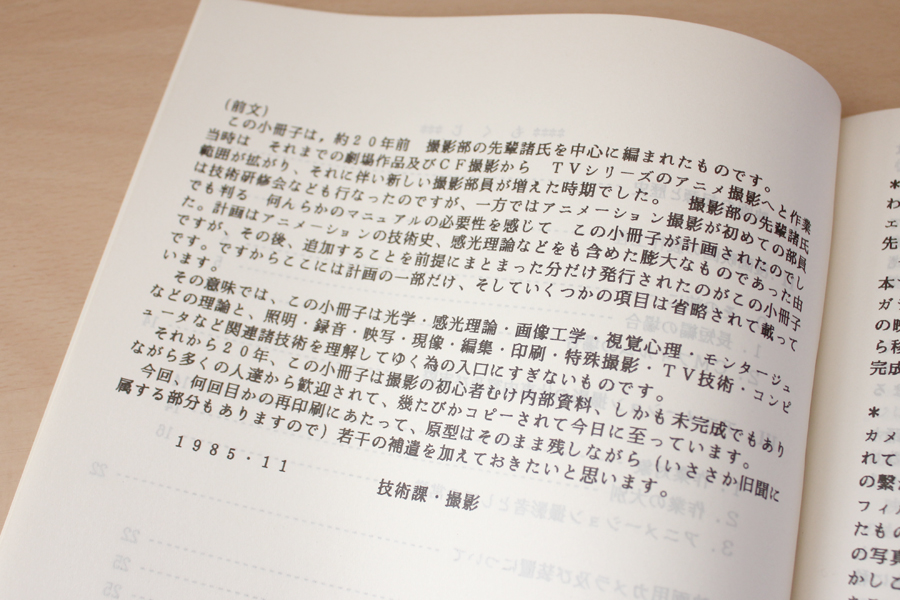 (前文)
この小冊子は、約20年前　撮影部の先輩諸氏を中心に編まれたものです。
当時は　それまでの劇場作品及びCF撮影から　TVシリーズのアニメ撮影へと作業
範囲が拡がり、それに伴い新しい撮影部員が増えた時期でした。　撮影部の先輩諸氏
は技術研修会なども行なったのですが、一方ではアニメーション撮影が初めての部員
でも判る　何んらかのマニュアルの必要性を感じて　この小冊子が計画されたのでし
た。計画はアニメーションの技術史、感光理論などをも含めた膨大なものであった由
ですが、その後、追加することを前提にまとまった分だけ発行されたのがこの小冊子
です。ですからここには計画の一部だけ、そしていくつかの項目は省略されて載って
います。
その意味では、この小冊子は光学・感光理論・画像工学・視覚心理・モンタージュ
などの理論と、照明・録音・映写・現像・編集・印刷・特殊撮影・TV技術・コンピ
ュータなど関連諸技術を理解してゆく為の入口にすぎないものです。
それから20年、この小冊子は撮影の初心者むけ内部資料、しかも未完成でもあり
ながら多くの人達から歓迎されて、幾たびかコピーされて今日に至っています。
今回、何回目かの再印刷にあたって、原型はそのまま残しながら（いささか旧聞に
属する部分もありますので）若干の補遺を加えておきたいと思います。
1985・11
技術課・撮影
*
わ
ェ
先
本
ガ
の
ら
完成
*
カメ
れて
の繋
フィル
たもの
の写真
かしこ